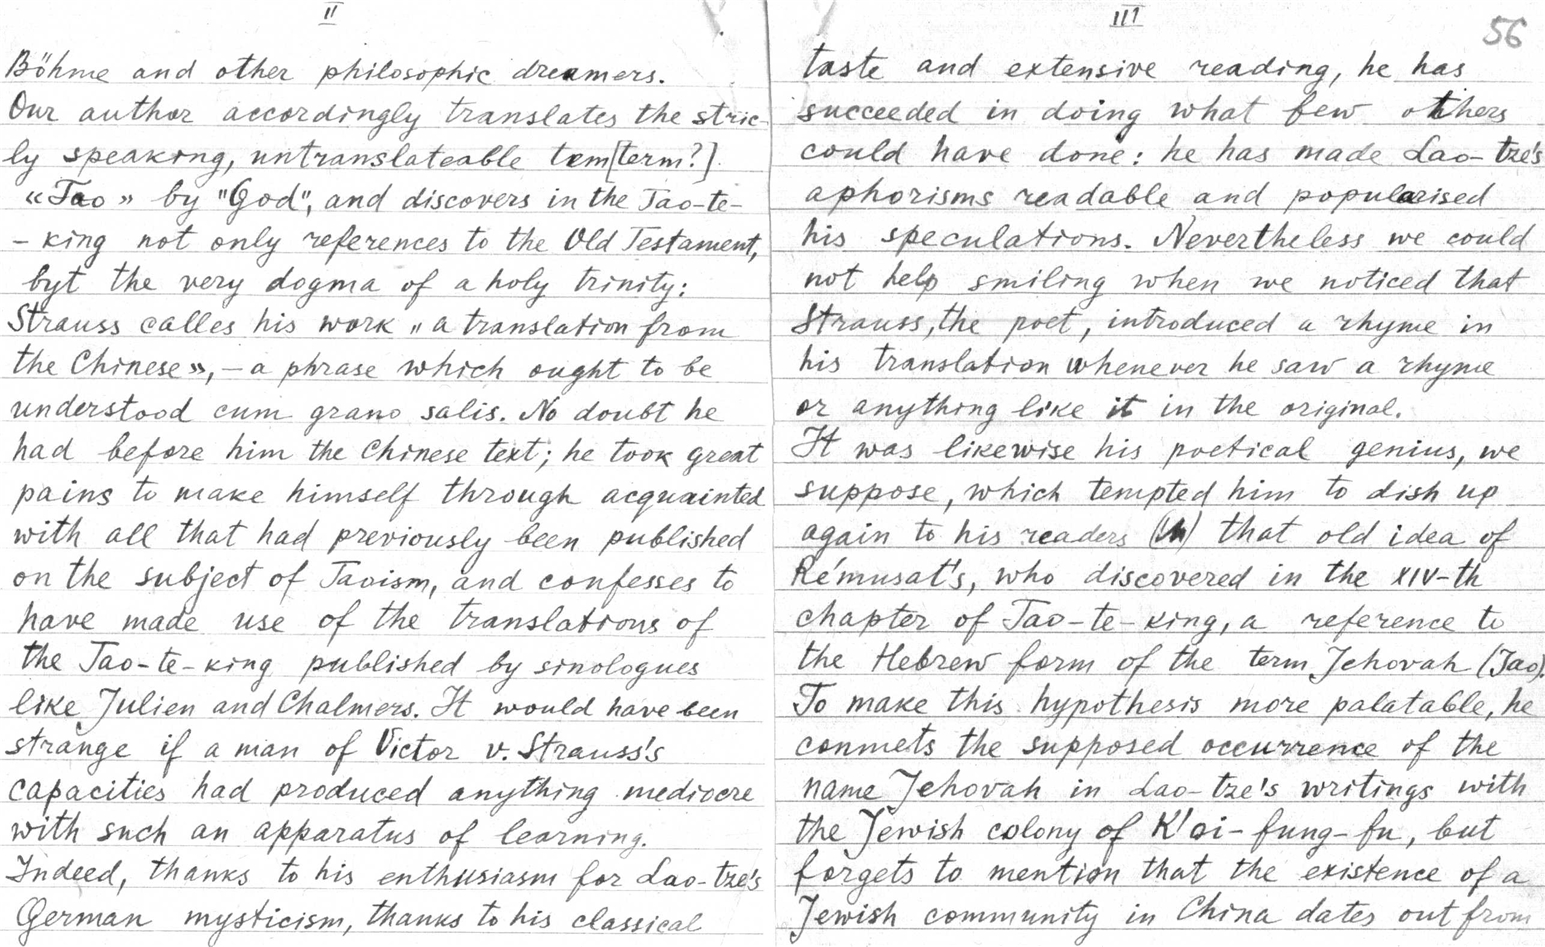 II
Böhme and other philosophic dreamers.
Our author accordingly translates the stric-
ly speaking, untranslateable tem [term?].
«Tao» by "God", and discovers in the Tao-te-
- king not only references to the Old Testament,
byt the very dogma of a holy trinity:
Strauss calles his work „a translation from
the Chinese», — a phrase which ought to be
understood cum grano salis. No doubt he
had before him the Chinese text; he took great
pains to make himself through acquainted
with all that had previously been published
on the subject of Taoism, and confesses to
have made use of the translations of
the Tao-te-king published by sinologues
like Julien and Chalmers. It would have been
strange if a man of Victor v. Strauss's
capacities had produced anything mediocre
with such an apparatus of learning.
Indeed, thanks to his enthusiasm for Lao-tze's
German mysticism, thanks to his classical
III
56
taste and extensive reading, he has
succeeded in doing what few others
could have done: he has made Lao-tze's
aphorisms readable and popularised
his speculations. Nevertheless we could
not help smiling when we noticed that
Strauss, the poet, introduced a rhyme in
his translation whenever he saw a rhyme
or anything like it in the original.
It was likewise his poetical genius, we
suppose, which tempted him to dish up
again to his readers that old idea of
Rémusat's, who discovered in the XIV-th
chapter of Tao-te-king, a reference to
the Hebrew form of the term Jehovah (Jao).
To make this hypothesis more palatable, he
conmets the supposed occurrence of the
name Jehovah in Lao-tze's writings with
the Jewish colony of K'ai-fung-fu, but
forgets to mention that the existence of a
Jewish community in China dates out from